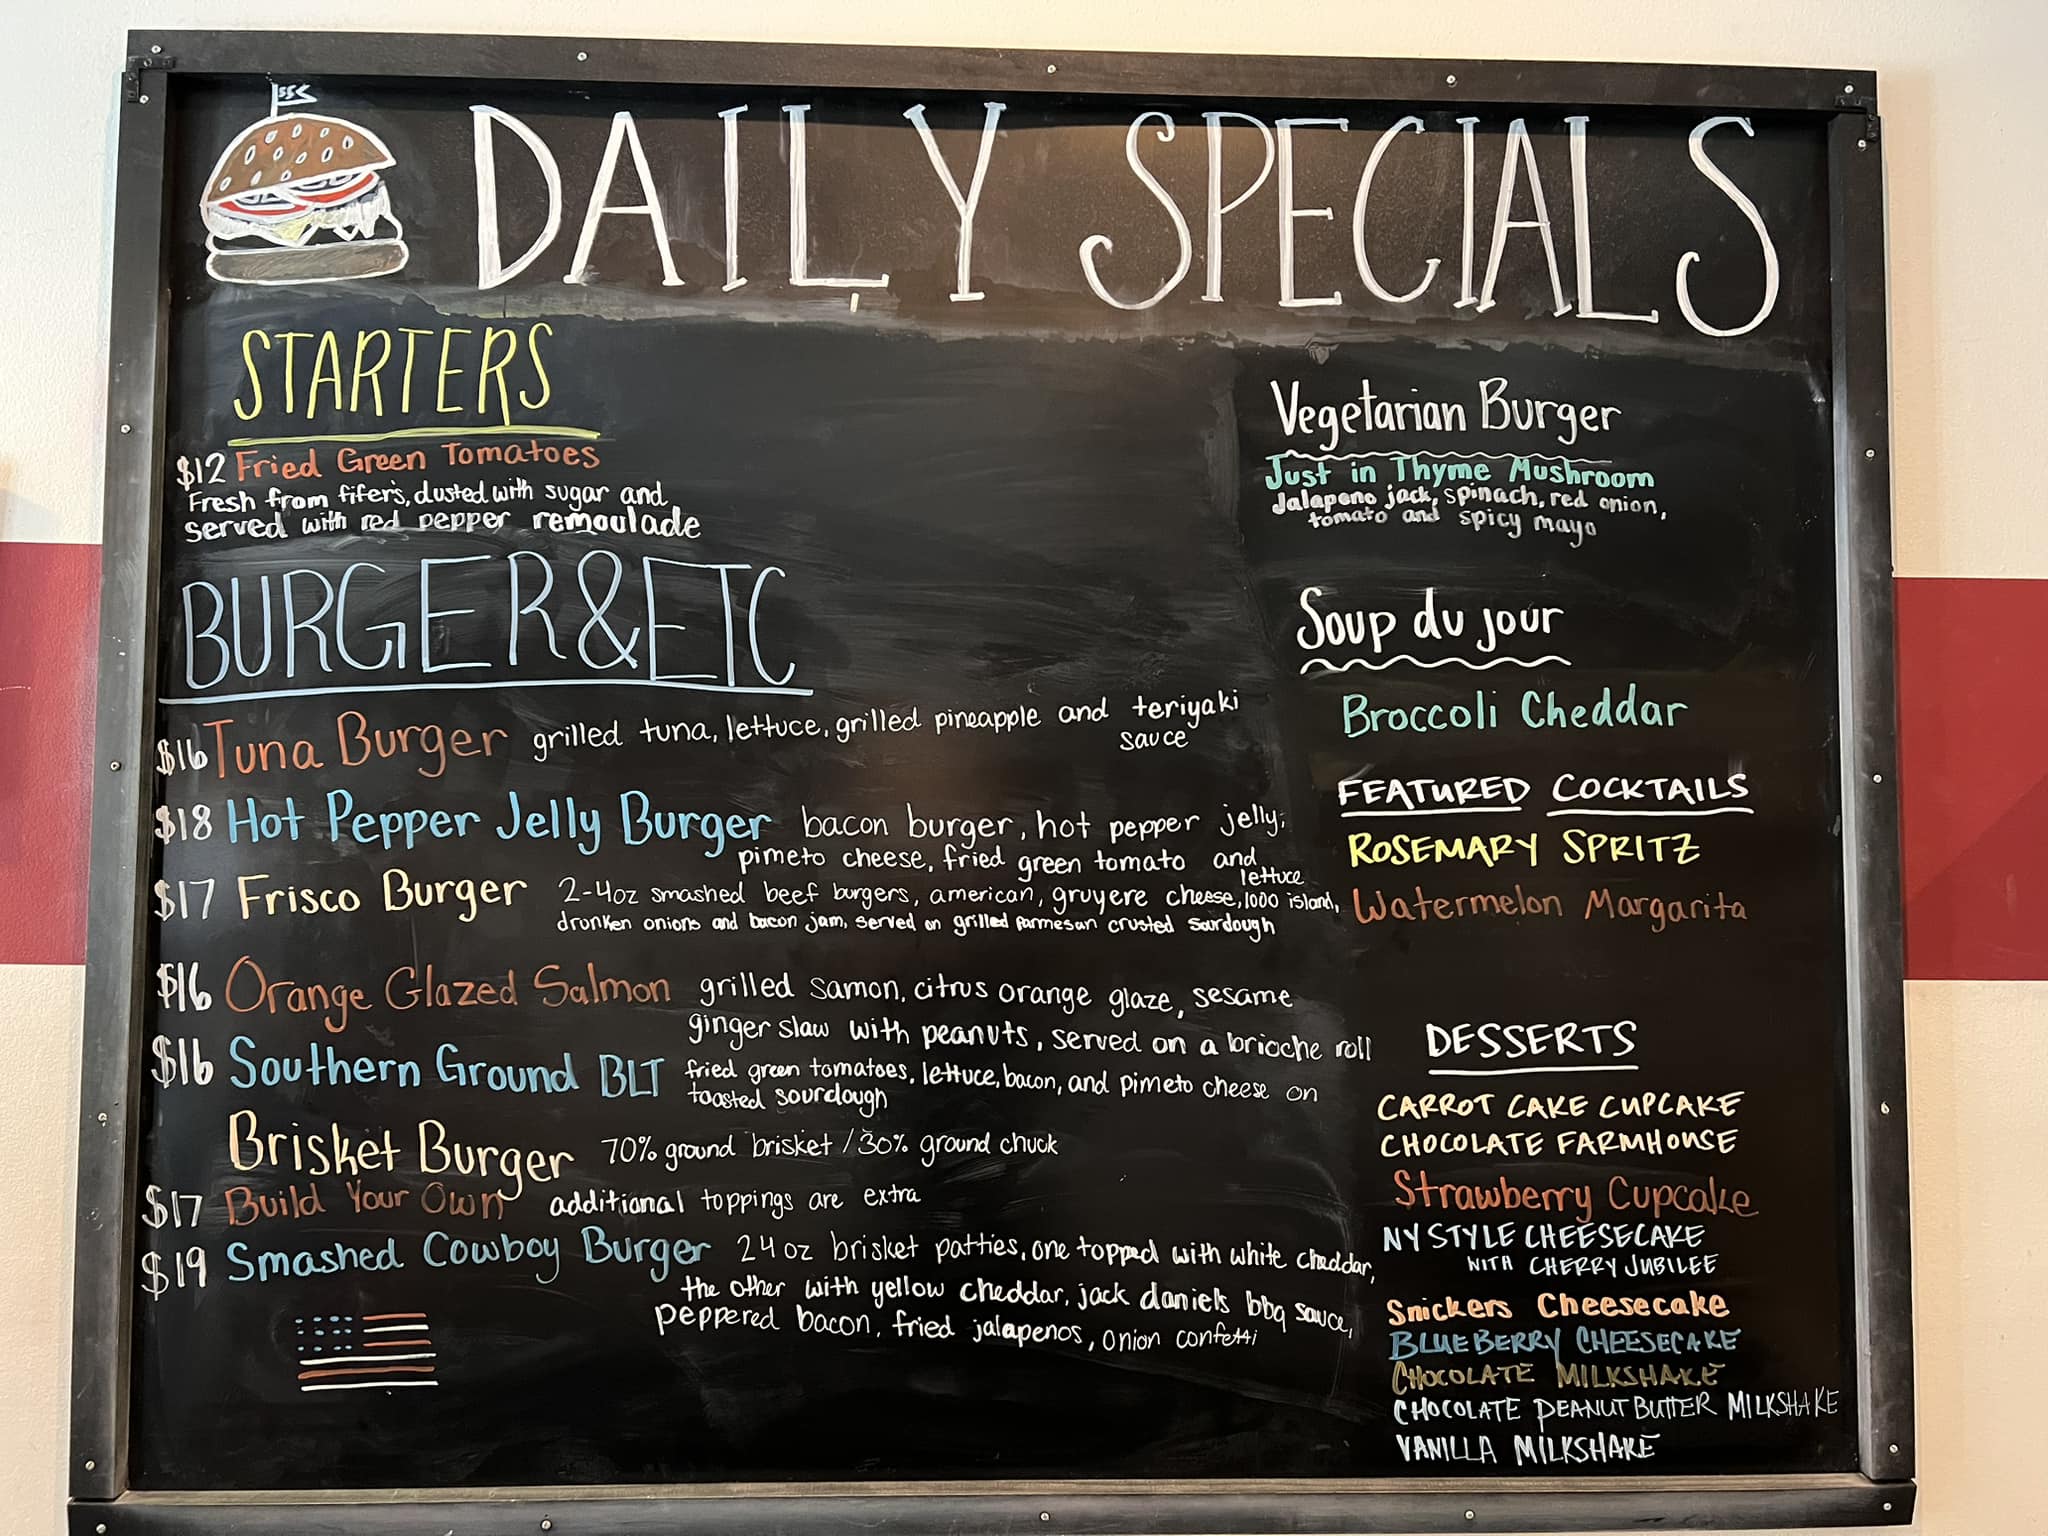 DAILY SPECIALS
STARTERS
$12 Fried Green Tomatoes
Fresh from fifer's, dusted with sugar and
served with red pepper remoulade
BURGER & ETC
$16 Tuna Burger grilled tuna, lettuce, grilled pineapple and teriyaki
sauce
$18 Hot Pepper Jelly Burger bacon burger, hot pepper jelly,
pimeto cheese, fried green tomato and
lettuce
$17 Frisco Burger 2-4oz smashed beef burgers, american, gruyere cheese, 1000 island,
drunken onions and bacon jam, served on grilled parmesan crusted sourdough
$16 Orange Glazed Salmon grilled samon, citrus orange glaze, sesame
ginger slaw with peanuts, served on a brioche roll
$16 Southern Ground BLT fried green tomatoes, lettuce, bacon, and pimeto cheese on
toasted sourdough
Brisket Burger 70% ground brisket / 30% ground chuck
$17 Build Your Own additional toppings are extra
$19 Smashed Cowboy Burger 2 4 oz brisket patties, one topped with white cheddar,
the other with yellow cheddar, jack daniels bbq sauce,
peppered bacon, fried jalapenos, onion confetti
Vegetarian Burger
Just in Thyme Mushroom
Jalapeno jack, spinach, red onion,
tomato and spicy mayo
Soup du jour
Broccoli Cheddar
FEATURED COCKTAILS
ROSEMARY SPRITZ
Watermelon Margarita
DESSERTS
CARROT CAKE CUPCAKE
CHOCOLATE FARMHOUSE
Strawberry Cupcake
NY STYLE CHEESECAKE
WITH CHERRY JUBILEE
Snickers Cheesecake
BLUEBERRY CHEESECAKE
CHOCOLATE MILKSHAKE
CHOCOLATE PEANUT BUTTER MILKSHAKE
VANILLA MILKSHAKE